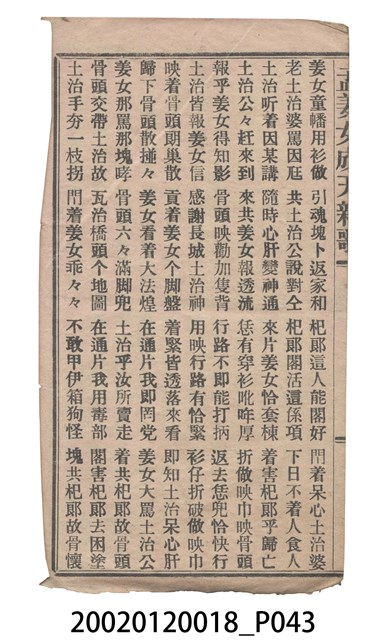 孟姜女新歌
姜女童幡用衫做 引魂塊卜返家和 杞郎這人能閣好 門着呆心土治婆
老土治婆罵因尫 共土治公說對仝 杞郎閣活這係項 下日不着人食人
土治听着因某講 隨時心肝變神通 來片姜女恰套棟 着害杞郎乎歸亡
土治公々赶來到 來共姜女報透流 恁有穿衫吪咋厚 折做映巾映骨頭
報乎姜女得知影 骨頭映勸加隻背 行路不即能打抦 返去恁兜恰快行
土治皆報姜女信 感謝長城土治神 用映行路有恰緊 衫仔折破做映巾
映着骨頭朗巢散 貢着姜女个脚盤 着緊皆透落來看 即知土治呆心肝
歸下骨頭散掽々 姜女看着大法煌 在通片我即罔党 姜女大罵土治公
姜女那罵那塊哮 骨頭六々滿脚兜 土治乎汝所賣走 着共杞郎故骨頭
骨頭交帶土治故 瓦治橋頭个地圖 在通片我用毒部 閣害杞郎去困塗
土治手夯一枝拐 門着姜女乖々々 不敢甲伊箱狗怪 塊共杞郎故骨懷
20020120018_P043